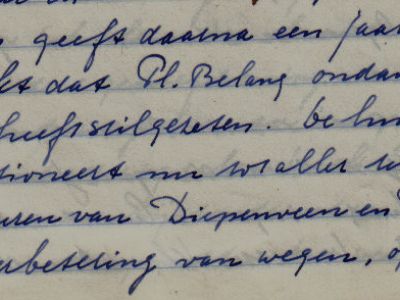 geeft daarna een jaar
kt dat Pl. Belang ondan
heeft stilgezeten. be hu
tioneert nu tot aller te
uren van Diepenveen en
rbetering van wegen, op